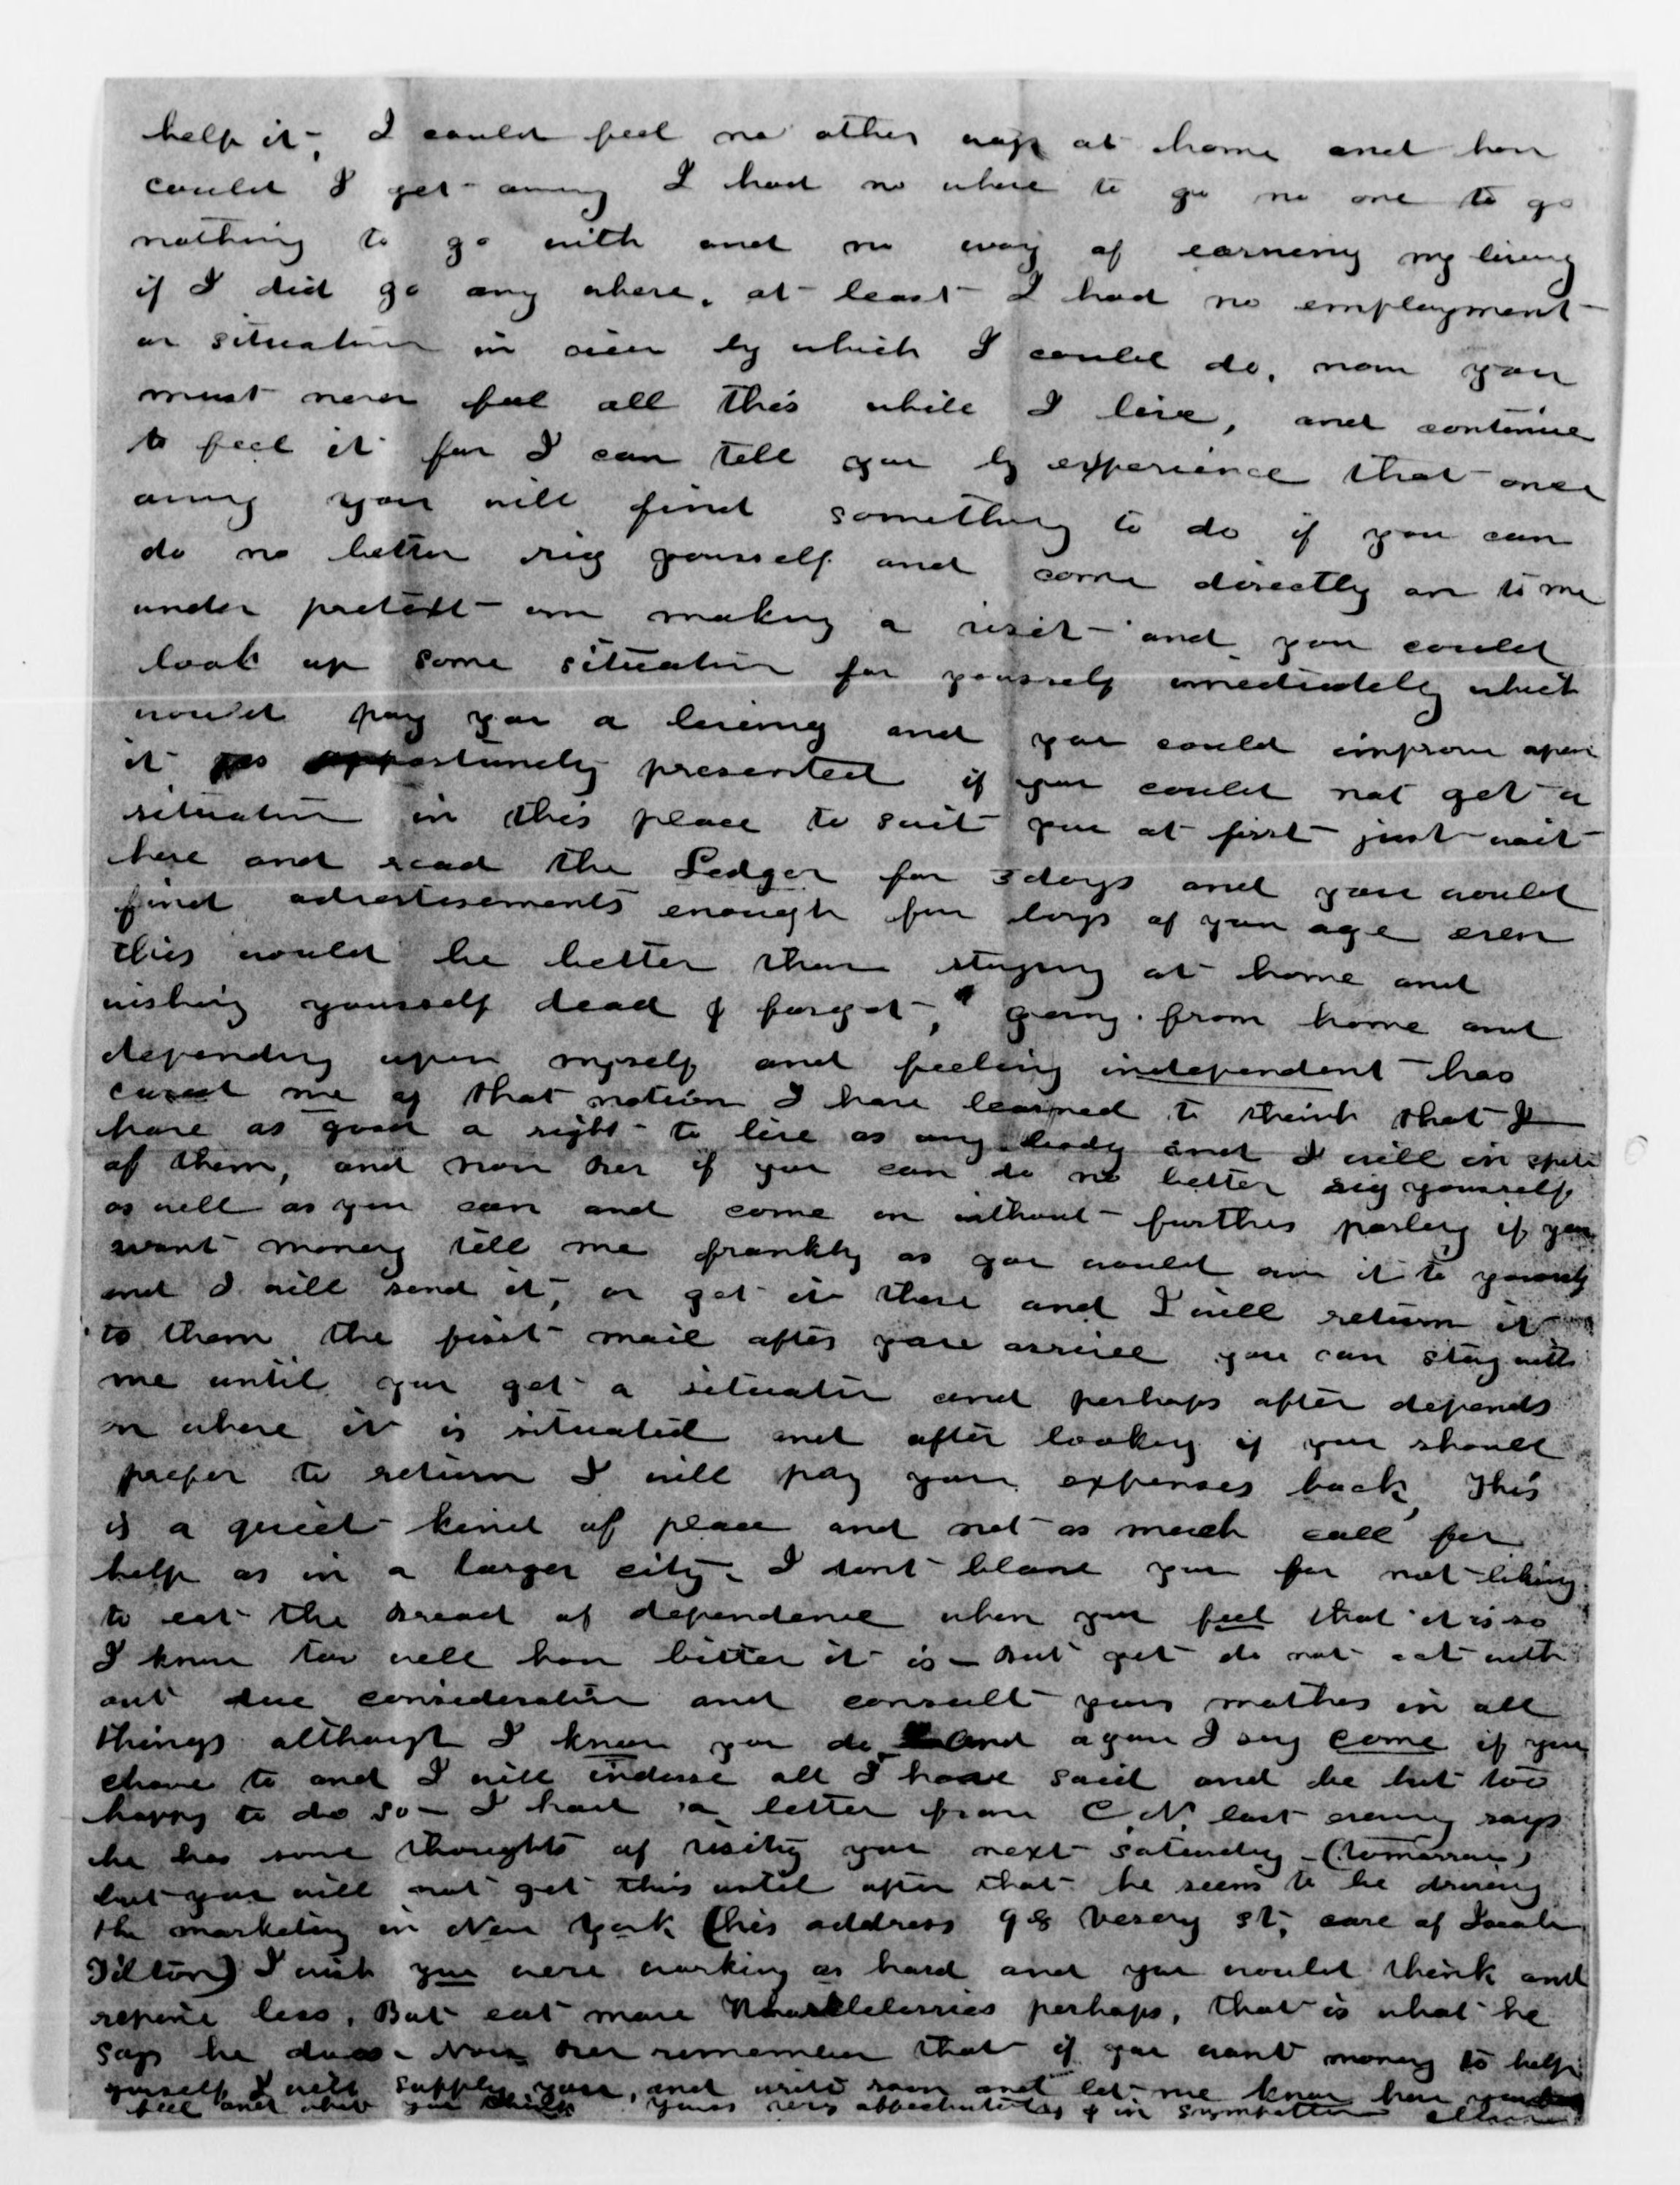 help it, I could feel no other way at home and how
could I get away I had no where to go no one to go
nothing to go with and no way of earning my living
if I did go any where, at least I had no employment
or situation in view by which I could do, now you
must never feel all this while I live, and continue
to feel it for I can tell you by experience that once
away you will find something to do if you can
do no better rig yourself and come directly on to me
under pretext on making a visit and you could
look up some situation for yourself imediately which
would pay you a living and you could improve upon
it as opportunely presented if you could not get a
situation in this place to suit you at first just wait
here and read the Ledger for 3 days and you would
find advertisements enough for boys of your age even
this would be better than staying at home and
wishing yourself dead I forgot, going from home and
depending upon myself and feeling independent has
cured me of that notion I have learned to think that I
have as good a right to live as any body and I will in spite
of them, and now Ber if you can do no better rig yourself
as well as you can and come on without further parley if you
want money tell me frankly as you would own it to yourself
and I will send it, or get it there and I will return it
to them the first mail after your arrival you can stay with
me until you get a situation and perhaps after depends
on where it is situated and after looking if you should
prefer to return I will pay your expenses back, This
is a quiet kind of place and not as much call for
help as in a larger city - I dont blame you for not liking
to eat the bread of dependence when you feel that it is so
I know too well how bitter it is - but yet do not act with
out due consideration and consult your mother in all
things althought I know you do and again I say come if you
chose to and I will indorse all I have said and be but too
happy to do so - I had a letter from C. N. last evening says
he has some thoughts of visiting you next Saturday - (tomorrow)
but you will not get this until after that he seems to be driving
the marketing in New York (his address 98 Vesey St, care of
Tilton) I wish you were working as hard and you would think and
repine less, But eat more perhaps, that is what he
says he does - Now Ber remember that if you want money to help
yourself I will supply you, and write soon and let me know how you
feel and what you think yours very affectionately & in sympathy